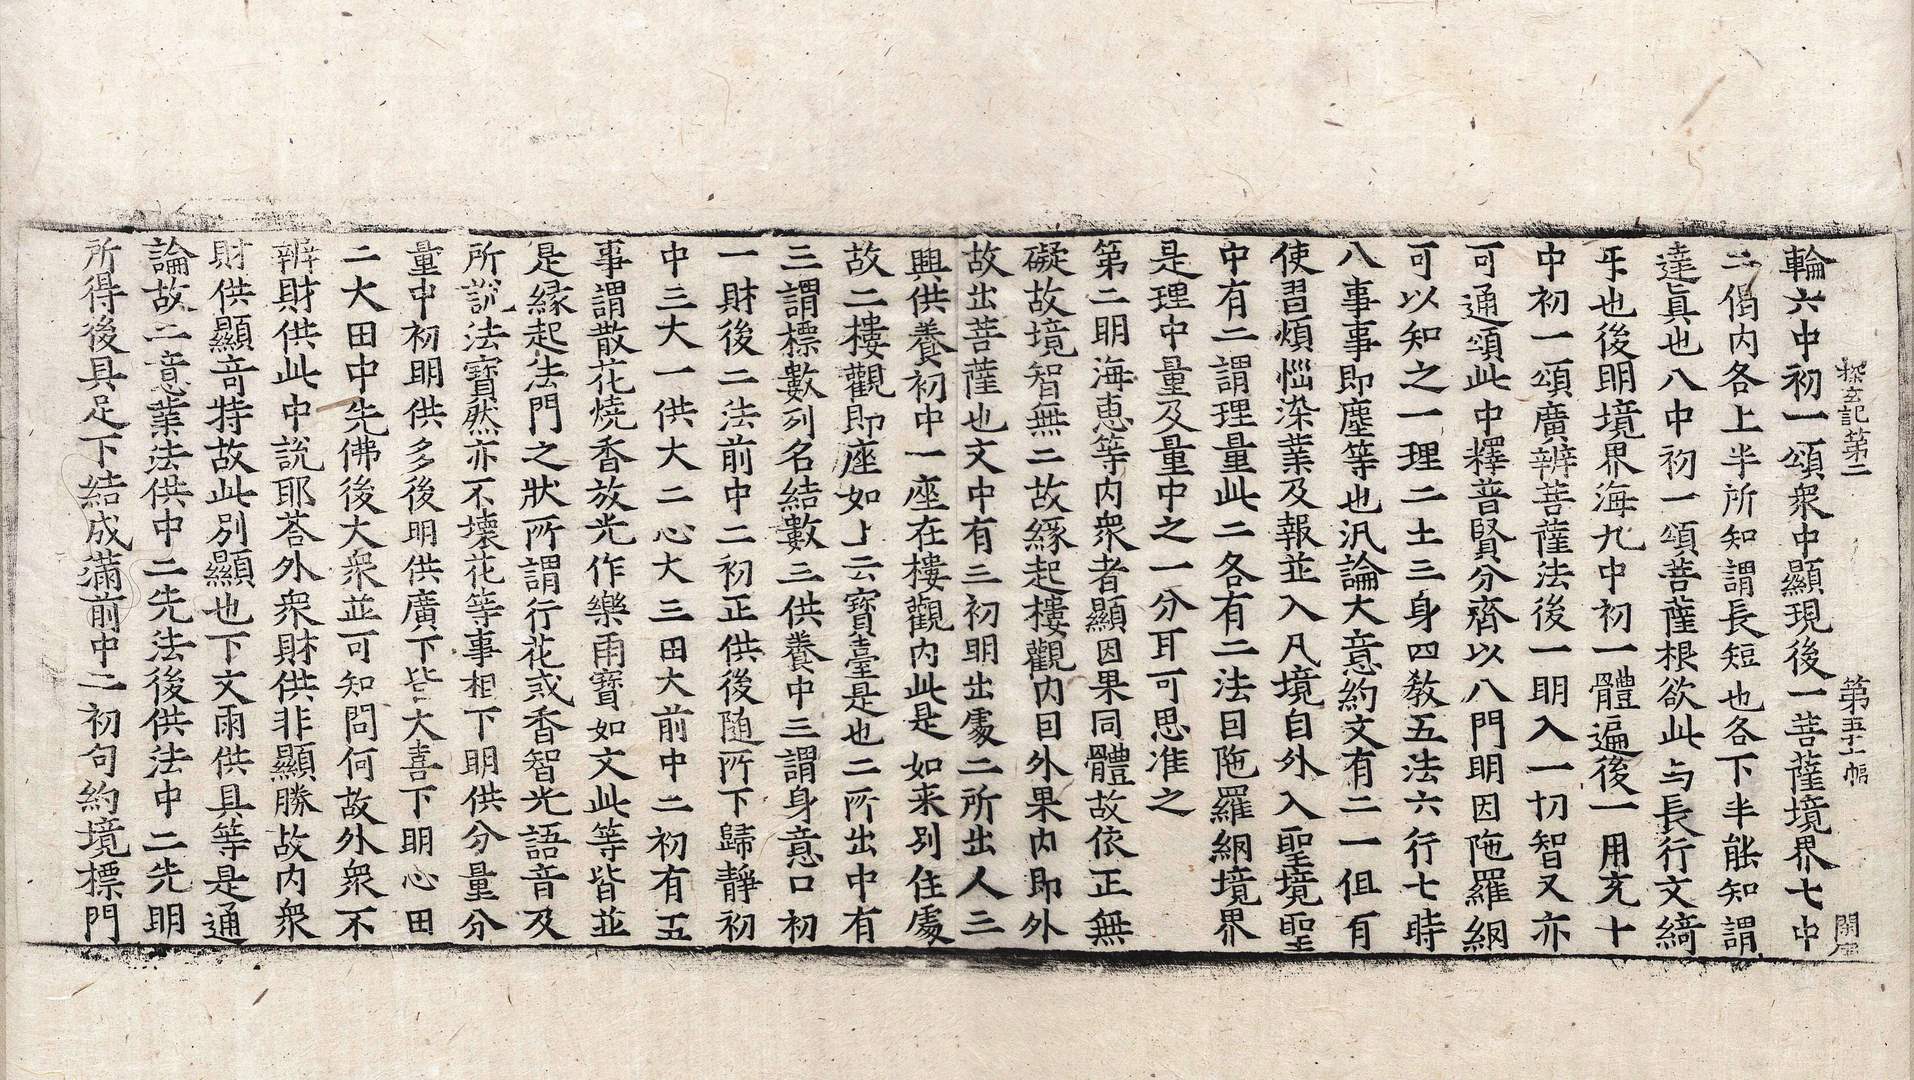 探玄記第二　第五十一幅
輪六中初一頌衆中顯現後一菩薩境界七中
二偈内各上半所知謂長短也各下半能知謂
達眞也八中初一頌菩薩根欲此与長行文綺
乎也後明境界海九中初一體遍後一用充十
中初一頌廣辨菩薩法後一明入一切智又亦
可通頌此中釋普賢分齊以八門明因陁羅網
可以知之一理二土三身四教五法六行七時
八事事即塵等也汎論大意約文有二一伹有
使習煩惱染業及報並入凡境自外入聖境聖
中有二謂理量此二各有二法因陁羅網境界
是理中量及量中之一分耳可思准之
第二明海惠等内衆者顯因果同體故依正無
礙故境智無二故縁起樓觀内因外果内即外
故出菩薩也文中有三初明出處二所出人三
興供養初中一座在樓觀内此是如来別住處
故二樓觀即座如上云寶臺是也二所出中有
三謂標數列名結數三供養中三謂身意口初
一財後二法前中二初正供後随所下歸靜初
中三大一供大二心大三田大前中二初有五
事謂散花燒香放光作樂雨寶如文此等皆並
是縁起法門之狀所謂行花或香智光語音及
所說法寶然亦不壞花等事相下明供分量分
量中初明供多後明供廣下皆大喜下明心田
二大田中先佛後大衆並可知問何故外衆不
辨財供此中說耶荅外衆財供非顯勝故内衆
財供顯竒特故此別顯也下文雨供具等是通
論故二意業法供中二先法後供法中二先明
所得後具足下結成滿前中二初句約境標門